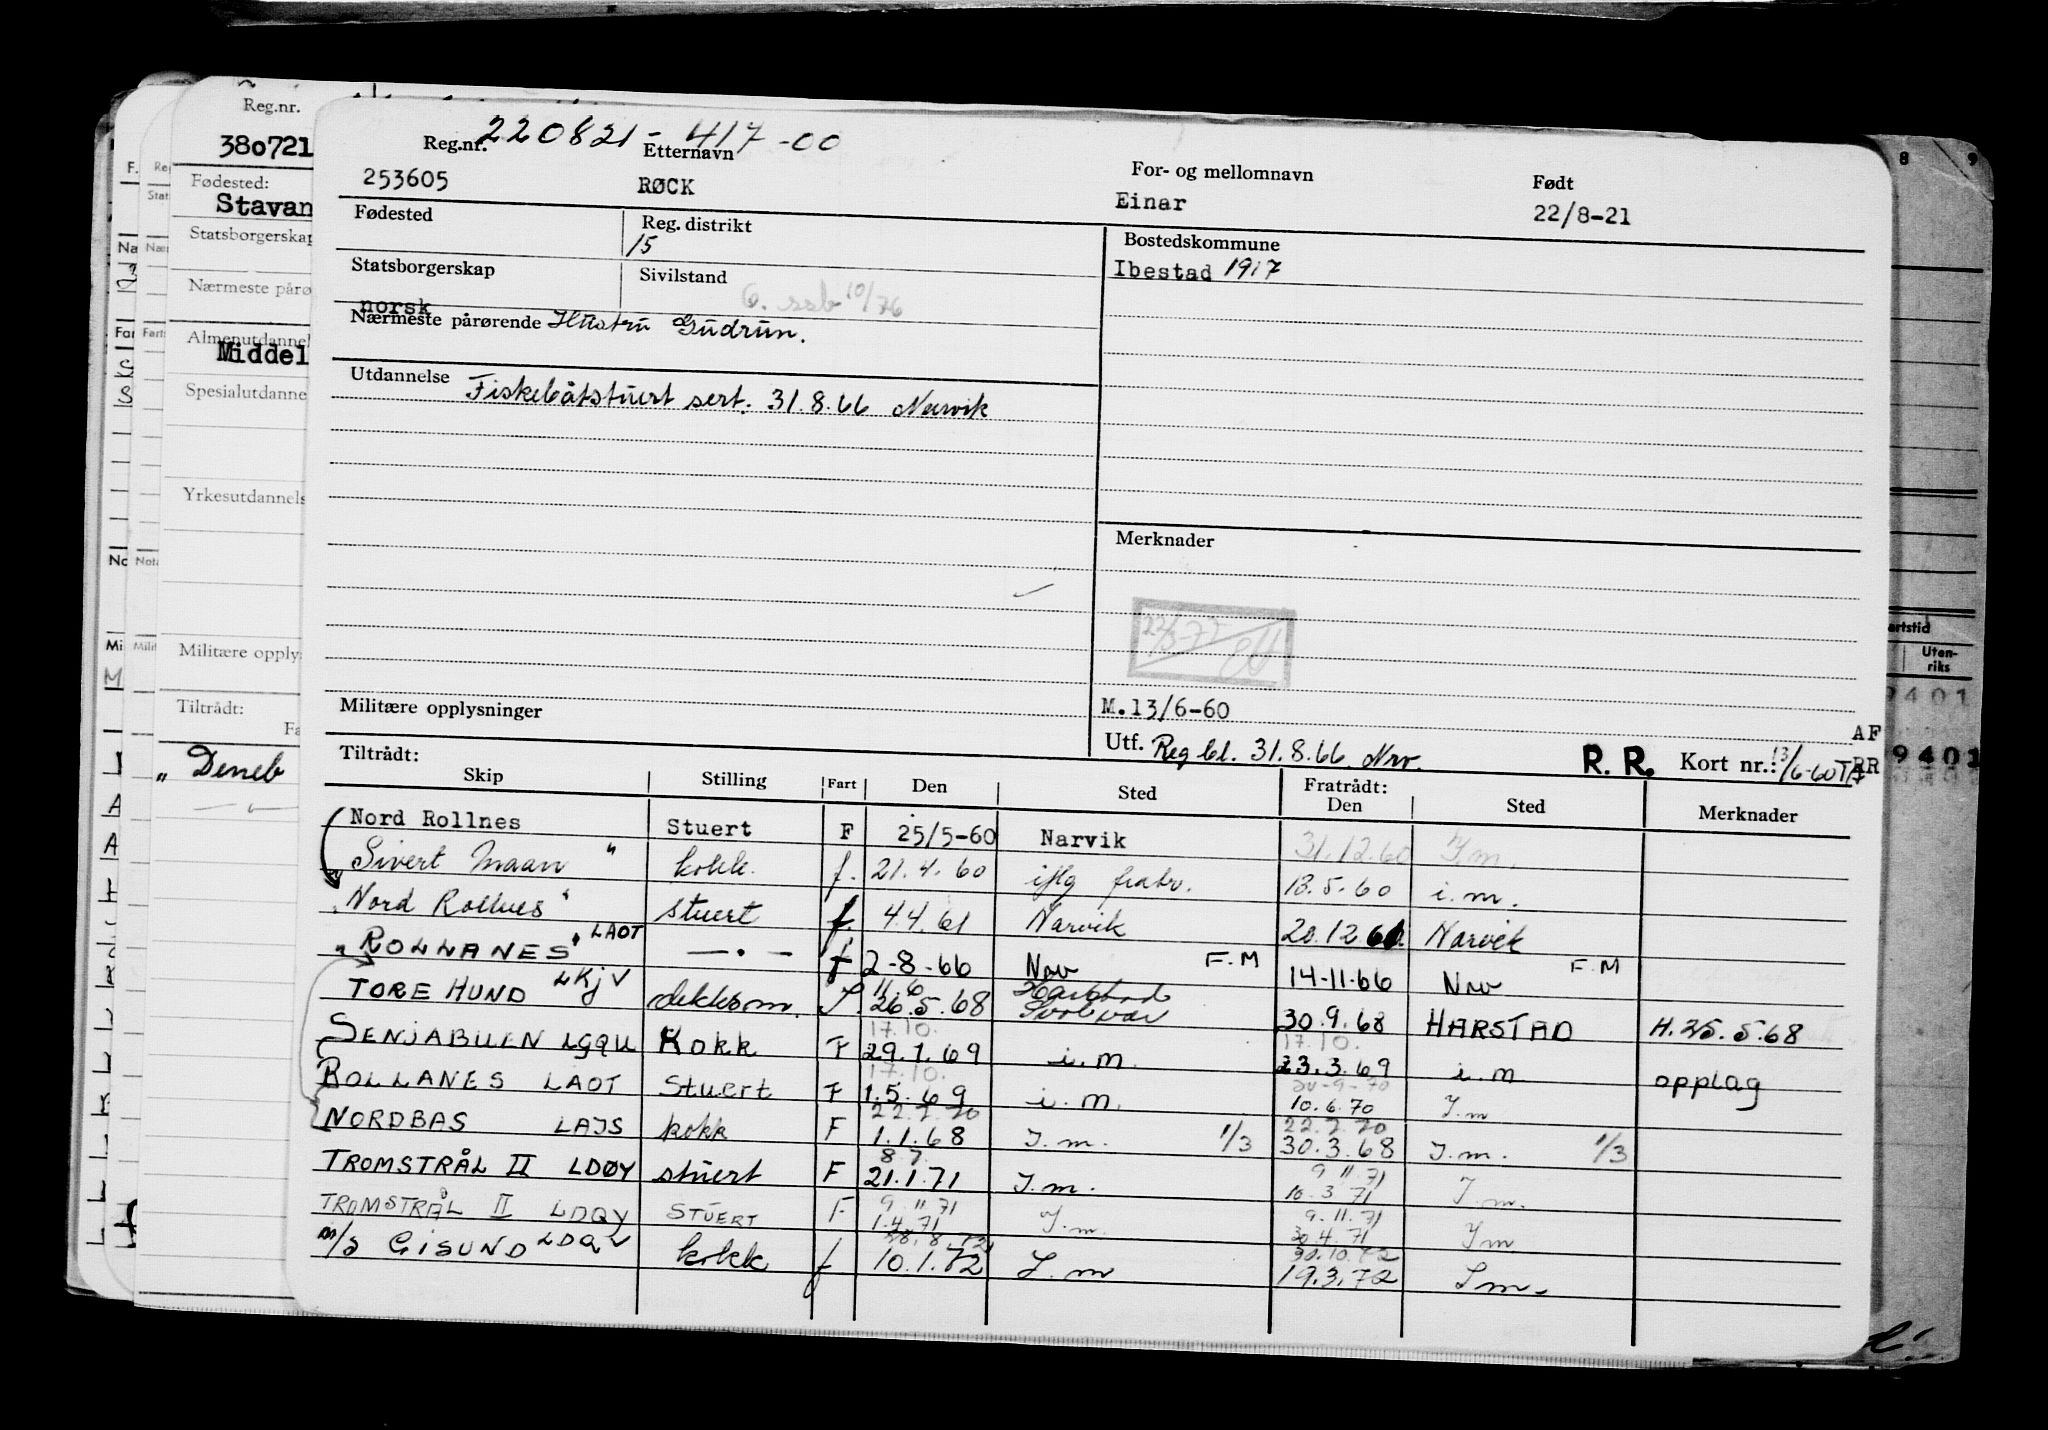 Reg.nr.
380721
Fødested:
Stavan
Statsborgerskap
Nærmeste påro
Almenutdannel
Middel
Spesialutdanne
Yrkesutdannels
Militære opply
Tiltrådt:
„ Deneb
220821 - 417 -00
Reg.nr. Etternavn For- og mellomnavn Født
253605 RØCK Einar 22/8-21
Fødested Reg. distrikt Bostedskommune
15 Ibestad 1917
Statsborgerskap Sivilstand
norsk 6. ssb 10/76
Nærmeste pårørende Hustru Gudrun.
Utdannelse Fiskebåtstuert sert. 31.8.66 Narvik
Merknader
Militære opplysninger M.13/6-60
Utf. Reg bl. 31.8.66 Nrv. R. R. Kort nr.: 13/6-60TA
AF
RR
Tiltrådt: Fratrådt:
Skip Stilling Fart Den Sted Den Sted Merknader
Nord Rollnes Stuert F 25/5-60 Narvik 31.12.60 I.m.
Sivert Maan " kokk. f. 21.4.60 iflg fratr. 13.5.60 i.m.
"Nord Rollnes" stuert f. 4.4.61 Narvik 20.12.61 Narvik
"ROLLANES" LAOT — . — f 2-8-66 Nrv F.M 14-11-66 Nrv F.M
11.6 Harstad
TORE HUND LKJV dekksm. 26.5.68 Svolvær 30.9.68 HARSTAD H.25.5.68
17.10. 17.10.
SENJABUEN LGQU KOKK F 29.1.69 i.m. 23.3.69 i.m opplag
17.10. 20-9-70
ROLLANES LAOT Stuert F 1.5.69 i.m. 10.6.70 I.m
22.7.70 22.7.70
NORDBAS LAJS kokk F 1.1.68 I.m. 1/3 30.3.68 I.m. 1/3
8.7. 9 11 71
TROMSTRÅL II LDØY stuert F 21.1.71 I.m. 10.3 71 I.m.
9 11 71 9.11.71
TROMSTRÅL II LDQY STUERT F 1.4.71 I.m. 30.4.71 I.m
30.10.72
M/S GISUND kokk f 10.1.72 I.m 19.3.72 I.m.
8 9
artstid
Uten-
riks
9401
9401